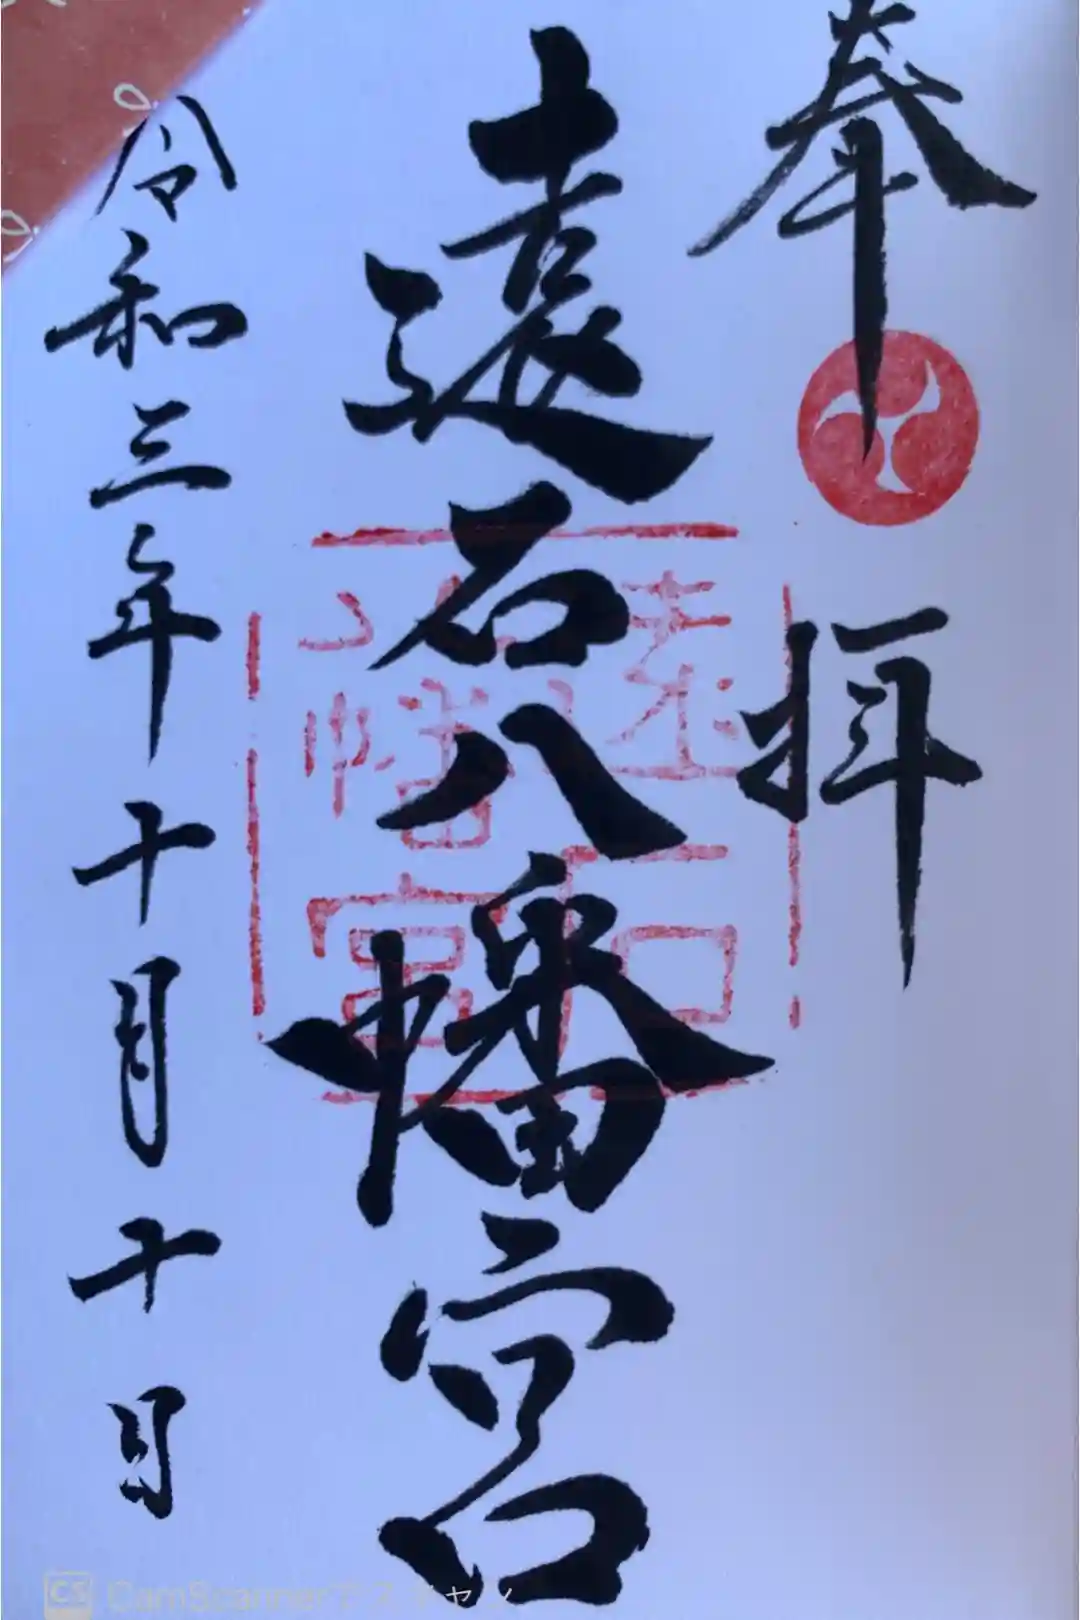 奉拝
遠石八幡宮
遠石
八幡宮
令和三年十月十日
CS CamScannerでスキャン